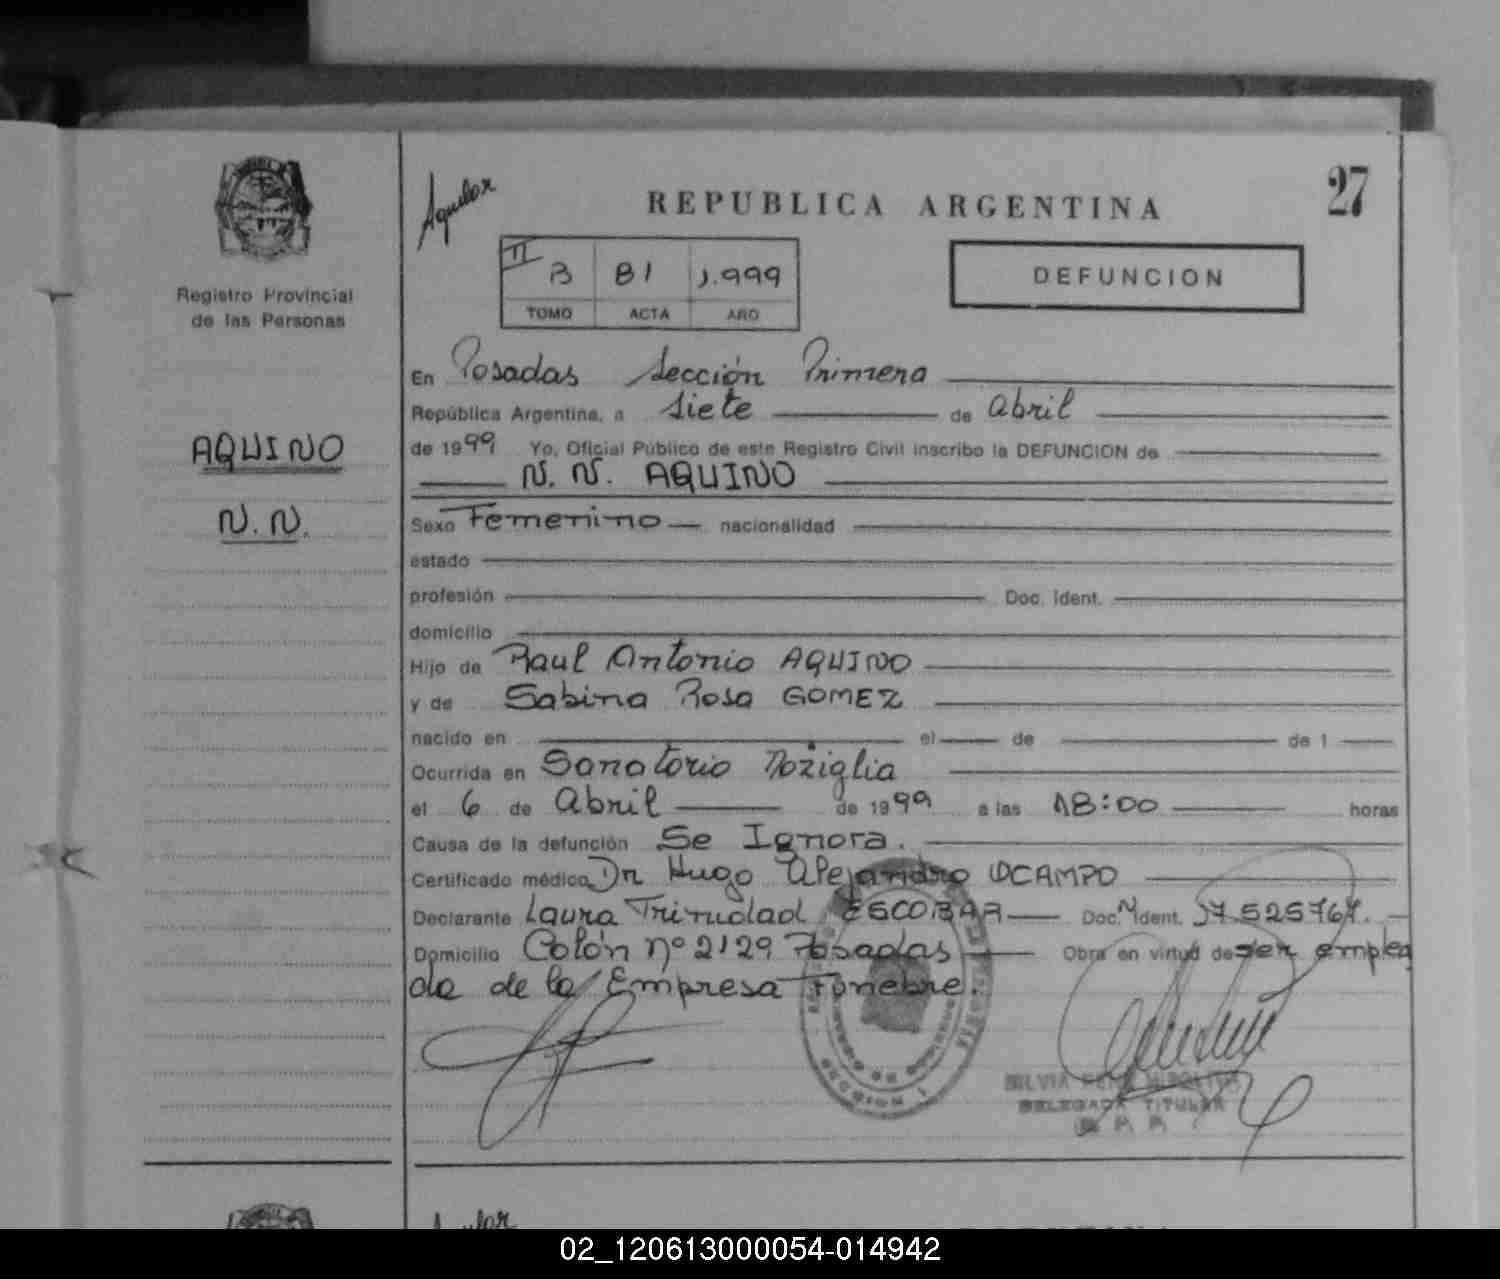 27
Aquilar
REPUBLICA ARGENTINA
II
B 81 1.999
TOMO ACTA AÑO
DEFUNCION
Registro Provincial
de las Personas
AQUINO
N.N.
En Posadas Sección Primera
República Argentina, a Siete de Abril
de 1999 Yo, Oficial Público de este Registro Civil inscribo la DEFUNCION de
N. N. AQUINO
Sexo Femenino nacionalidad
estado
profesión Doc. Ident.
domicilio
Hijo de Raul Antonio AQUINO
y de Sabina Rosa GOMEZ
nacido en el de de 1
Ocurrida en Sanatorio Noziglia
el 6 de Abril de 1999 a las 18:00 horas
Causa de la defunción Se Ignora.
Certificado médico Dr Hugo Alejandro OCAMPO
Declarante Laura Trinidad ESCOBAR Doc. Ident. 17.525767.
Domicilio Colón nº 2129 Posadas Obra en virtud de ser emplea
da de la Empresa Fúnebre.
SILVIA
DELEGADA TITULAR
SECCION 1
02_120613000054-014942